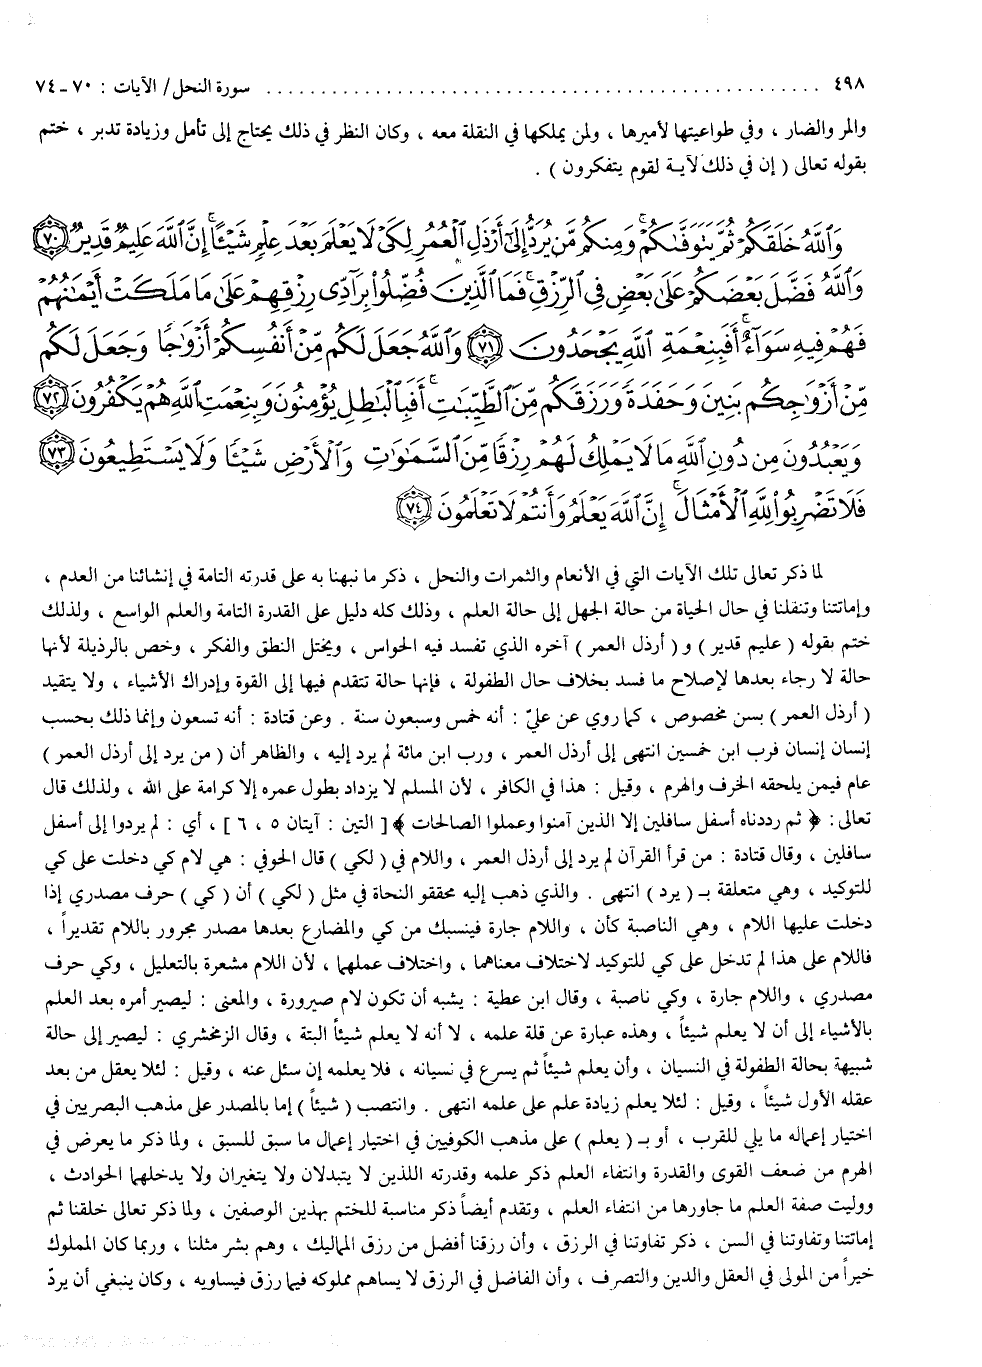 ٤٩٨ ........................................................ سورة النحل / الآيات : ٧٠ ـ ٧٤
والمر والضار ، وفي طواعيتها لأميرها ، ولمن يملكها في النقلة معه ، وكان النظر في ذلك يحتاج إلى تأمل وزيادة تدبر ، ختم
بقوله تعالى ( إن في ذلك لآية لقوم يتفكرون ) .
وَٱللَّهُ خَلَقَكُمْ ثُمَّ يَتَوَفَّىٰكُمْ ۚ وَمِنكُم مَّن يُرَدُّ إِلَىٰٓ أَرْذَلِ ٱلْعُمُرِ لِكَىْ لَا يَعْلَمَ بَعْدَ عِلْمٍ شَيْـًٔا ۚ إِنَّ ٱللَّهَ عَلِيمٌ قَدِيرٌ ٧٠
وَٱللَّهُ فَضَّلَ بَعْضَكُمْ عَلَىٰ بَعْضٍ فِى ٱلرِّزْقِ ۚ فَمَا ٱلَّذِينَ فُضِّلُوا۟ بِرَآدِّى رِزْقِهِمْ عَلَىٰ مَا مَلَكَتْ أَيْمَٰنُهُمْ
فَهُمْ فِيهِ سَوَآءٌ ۚ أَفَبِنِعْمَةِ ٱللَّهِ يَجْحَدُونَ ٧١ وَٱللَّهُ جَعَلَ لَكُم مِّنْ أَنفُسِكُمْ أَزْوَٰجًا وَجَعَلَ لَكُم
مِّنْ أَزْوَٰجِكُم بَنِينَ وَحَفَدَةً وَرَزَقَكُم مِّنَ ٱلطَّيِّبَٰتِ ۚ أَفَبِٱلْبَٰطِلِ يُؤْمِنُونَ وَبِنِعْمَتِ ٱللَّهِ هُمْ يَكْفُرُونَ ٧٢
وَيَعْبُدُونَ مِن دُونِ ٱللَّهِ مَا لَا يَمْلِكُ لَهُمْ رِزْقًا مِّنَ ٱلسَّمَٰوَٰتِ وَٱلْأَرْضِ شَيْـًٔا وَلَا يَسْتَطِيعُونَ ٧٣
فَلَا تَضْرِبُوا۟ لِلَّهِ ٱلْأَمْثَالَ ۚ إِنَّ ٱللَّهَ يَعْلَمُ وَأَنتُمْ لَا تَعْلَمُونَ ٧٤
لما ذكر تعالى تلك الآيات التي في الأنعام والثمرات والنحل ، ذكر ما نبهنا به على قدرته التامة في إنشائنا من العدم ،
وإماتتنا وتنقلنا في حال الحياة من حالة الجهل إلى حالة العلم ، وذلك كله دليل على القدرة التامة والعلم الواسع ، ولذلك
ختم بقوله ( عليم قدير ) و ( أرذل العمر ) آخره الذي تفسد فيه الحواس ، ويختل النطق والفكر ، وخص بالرذيلة لأنها
حالة لا رجاء بعدها لإصلاح ما فسد بخلاف حال الطفولة ، فإنها حالة تتقدم فيها إلى القوة وإدراك الأشياء ، ولا يتقيد
( أرذل العمر ) بسن مخصوص ، كما روي عن عليّ : أنه خمس وسبعون سنة . وعن قتادة : أنه تسعون وإنما ذلك بحسب
إنسان إنسان فرب ابن خمسين انتهى إلى أرذل العمر ، ورب ابن مائة لم يرد إليه ، والظاهر أن ( من يرد إلى أرذل العمر )
عام فيمن يلحقه الخرف والهرم ، وقيل : هذا في الكافر ، لأن المسلم لا يزداد بطول عمره إلا كرامة على الله ، ولذلك قال
تعالى : ﴿ ثم رددناه أسفل سافلين إلا الذين آمنوا وعملوا الصالحات ﴾ [ التين : آيتان ٥ ، ٦ ] ، أي : لم يردوا إلى أسفل
سافلين ، وقال قتادة : من قرأ القرآن لم يرد إلى أرذل العمر ، واللام في ( لكي ) قال الحوفي : هي لام كي دخلت على كي
للتوكيد ، وهي متعلقة بـ ( يرد ) انتهى . والذي ذهب إليه محققو النحاة في مثل ( لكي ) أن ( كي ) حرف مصدري إذا
دخلت عليها اللام ، وهي الناصبة كأن ، واللام جارة فينسبك من كي والمضارع بعدها مصدر مجرور باللام تقديراً ،
فاللام على هذا لم تدخل على كي للتوكيد لاختلاف معناهما ، واختلاف عملهما ، لأن اللام مشعرة بالتعليل ، وكي حرف
مصدري ، واللام جارة ، وكي ناصبة ، وقال ابن عطية : يشبه أن تكون لام صيرورة ، والمعنى : ليصير أمره بعد العلم
بالأشياء إلى أن لا يعلم شيئاً ، وهذه عبارة عن قلة علمه ، لا أنه لا يعلم شيئاً البتة ، وقال الزمخشري : ليصير إلى حالة
شبيهة بحالة الطفولة في النسيان ، وأن يعلم شيئاً ثم يسرع في نسيانه ، فلا يعلمه إن سئل عنه ، وقيل : لئلا يعقل من بعد
عقله الأول شيئاً ، وقيل : لئلا يعلم زيادة علم على علمه انتهى . وانتصب ( شيئاً ) إما بالمصدر على مذهب البصريين في
اختيار إعماله ما يلي للقرب ، أو بـ ( يعلم ) على مذهب الكوفيين في اختيار إعمال ما سبق للسبق ، ولما ذكر ما يعرض في
الهرم من ضعف القوى والقدرة وانتفاء العلم ذكر علمه وقدرته اللذين لا يتبدلان ولا يتغيران ولا يدخلهما الحوادث ،
ووليت صفة العلم ما جاورها من انتفاء العلم ، وتقدم أيضاً ذكر مناسبة للختم بهذين الوصفين ، ولما ذكر تعالى خلقنا ثم
إماتتنا وتفاوتنا في السن ، ذكر تفاوتنا في الرزق ، وأن رزقنا أفضل من رزق المماليك ، وهم بشر مثلنا ، وربما كان المملوك
خيراً من المولى في العقل والدين والتصرف ، وأن الفاضل في الرزق لا يساهم مملوكه فيما رزق فيساويه ، وكان ينبغي أن يردّ